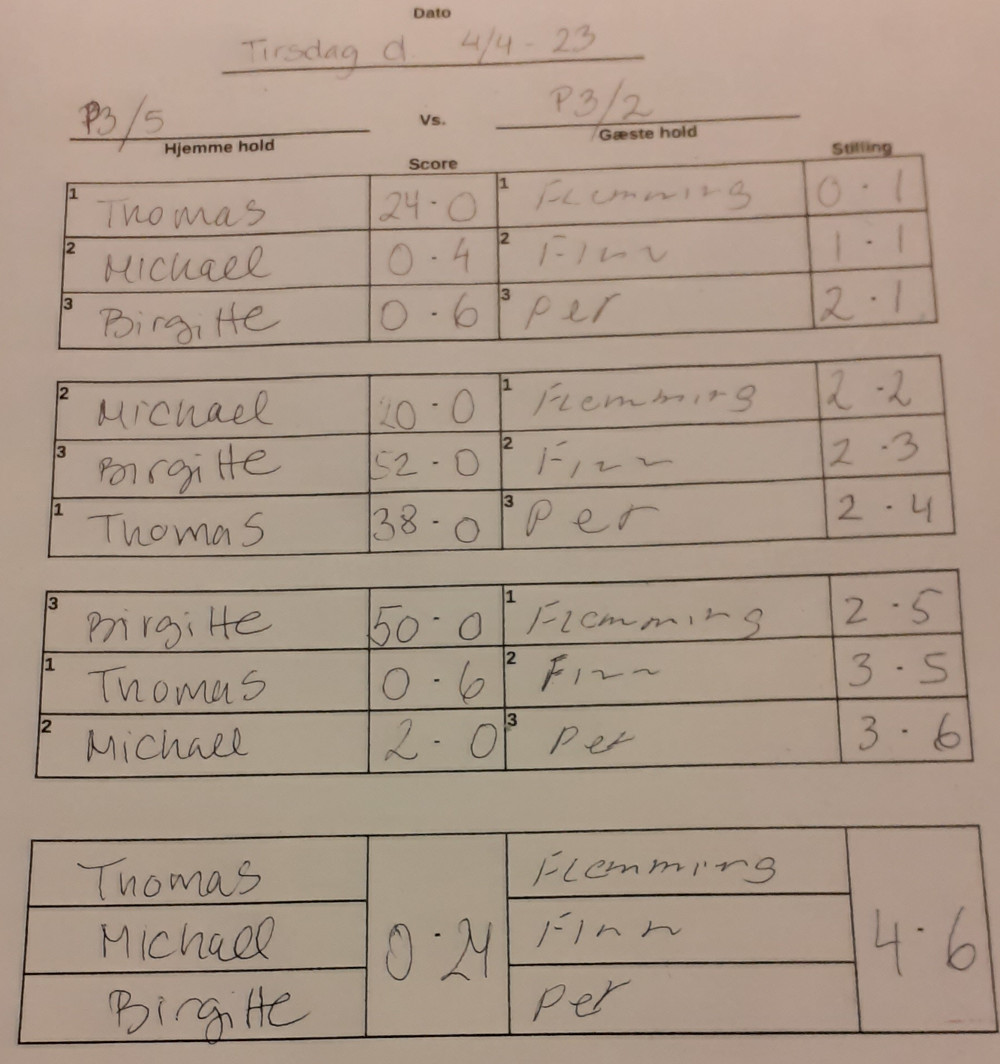 Dato
Tirsdag d. 4/4 - 23
P3/5 Vs. P3/2
Hjemme hold Gæste hold
Score Stilling
1 Thomas 24 · 0 1 Flemming 0 · 1
2 Michael 0 · 4 2 Finn 1 · 1
3 Birgitte 0 · 6 3 Per 2 · 1
2 Michael 20 · 0 1 Flemming 2 · 2
3 Birgitte 52 · 0 2 Finn 2 · 3
1 Thomas 38 · 0 3 Per 2 · 4
3 Birgitte 50 · 0 1 Flemming 2 · 5
1 Thomas 0 · 6 2 Finn 3 · 5
2 Michael 2 · 0 3 Per 3 · 6
Thomas Flemming
Michael 0 · 24 Finn 4 · 6
Birgitte Per